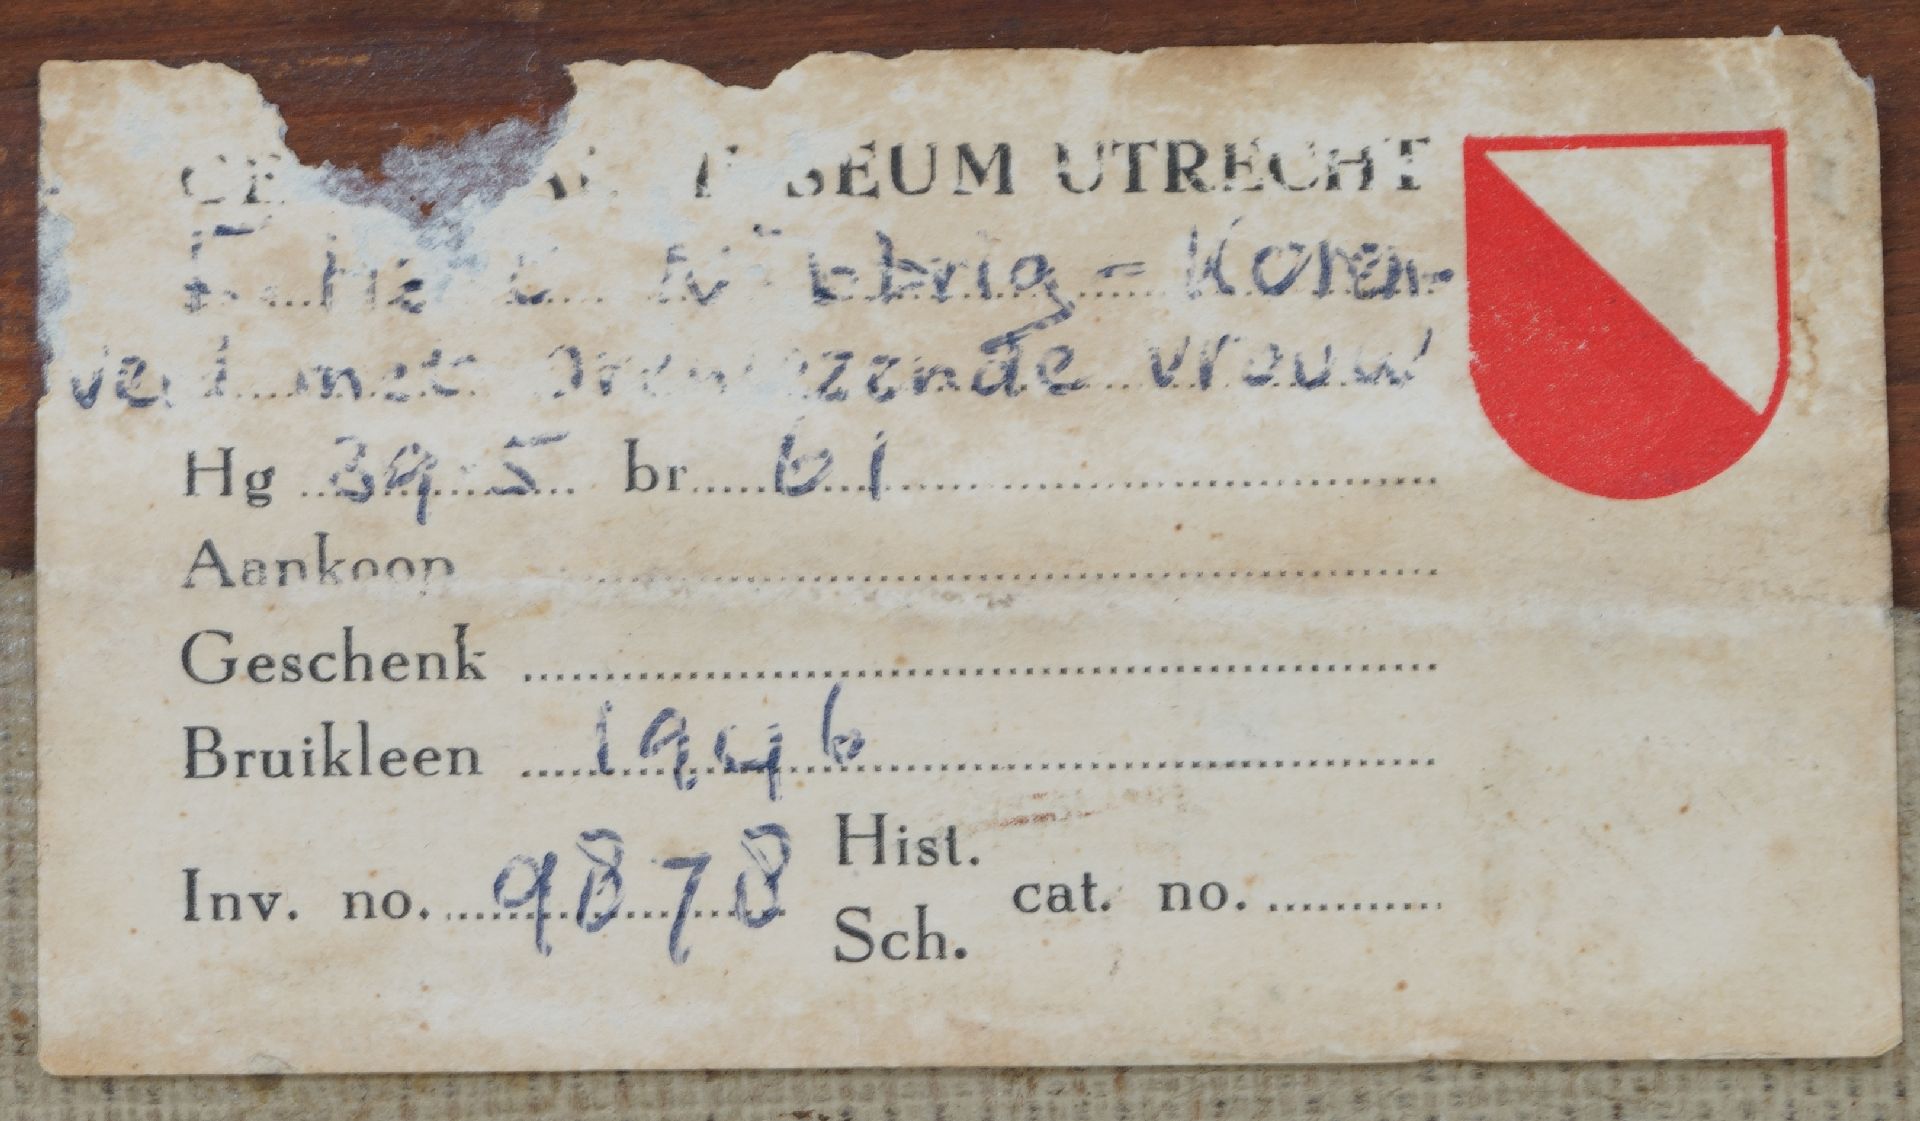 MUSEUM UTRECHT
bbrig - Koren-
veld met vrouw
Hg 39.5 br 61
Aankoop
Geschenk
Bruikleen 1946
Inv. no. 9878 Hist. Sch. cat. no.